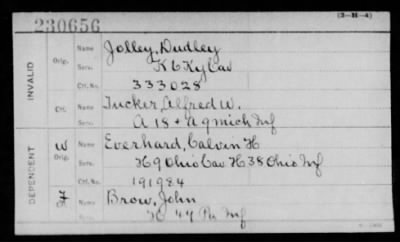 (3-H-4)
230656
INVALID
Orig. Name Jolley, Dudley
Serv. K 6 Ky Cav
Ctf. No. 333028
Ctf. Name Tucker, Alfred W.
A 18 + A 9 Mich Inf
DEPENDENT
W Orig. Name Everhard, Calvin H
Serv. H 9 Ohio Cav H 38 Ohio Inf
Ctf. No. 191984
Name Brow, John
47 Pa Inf